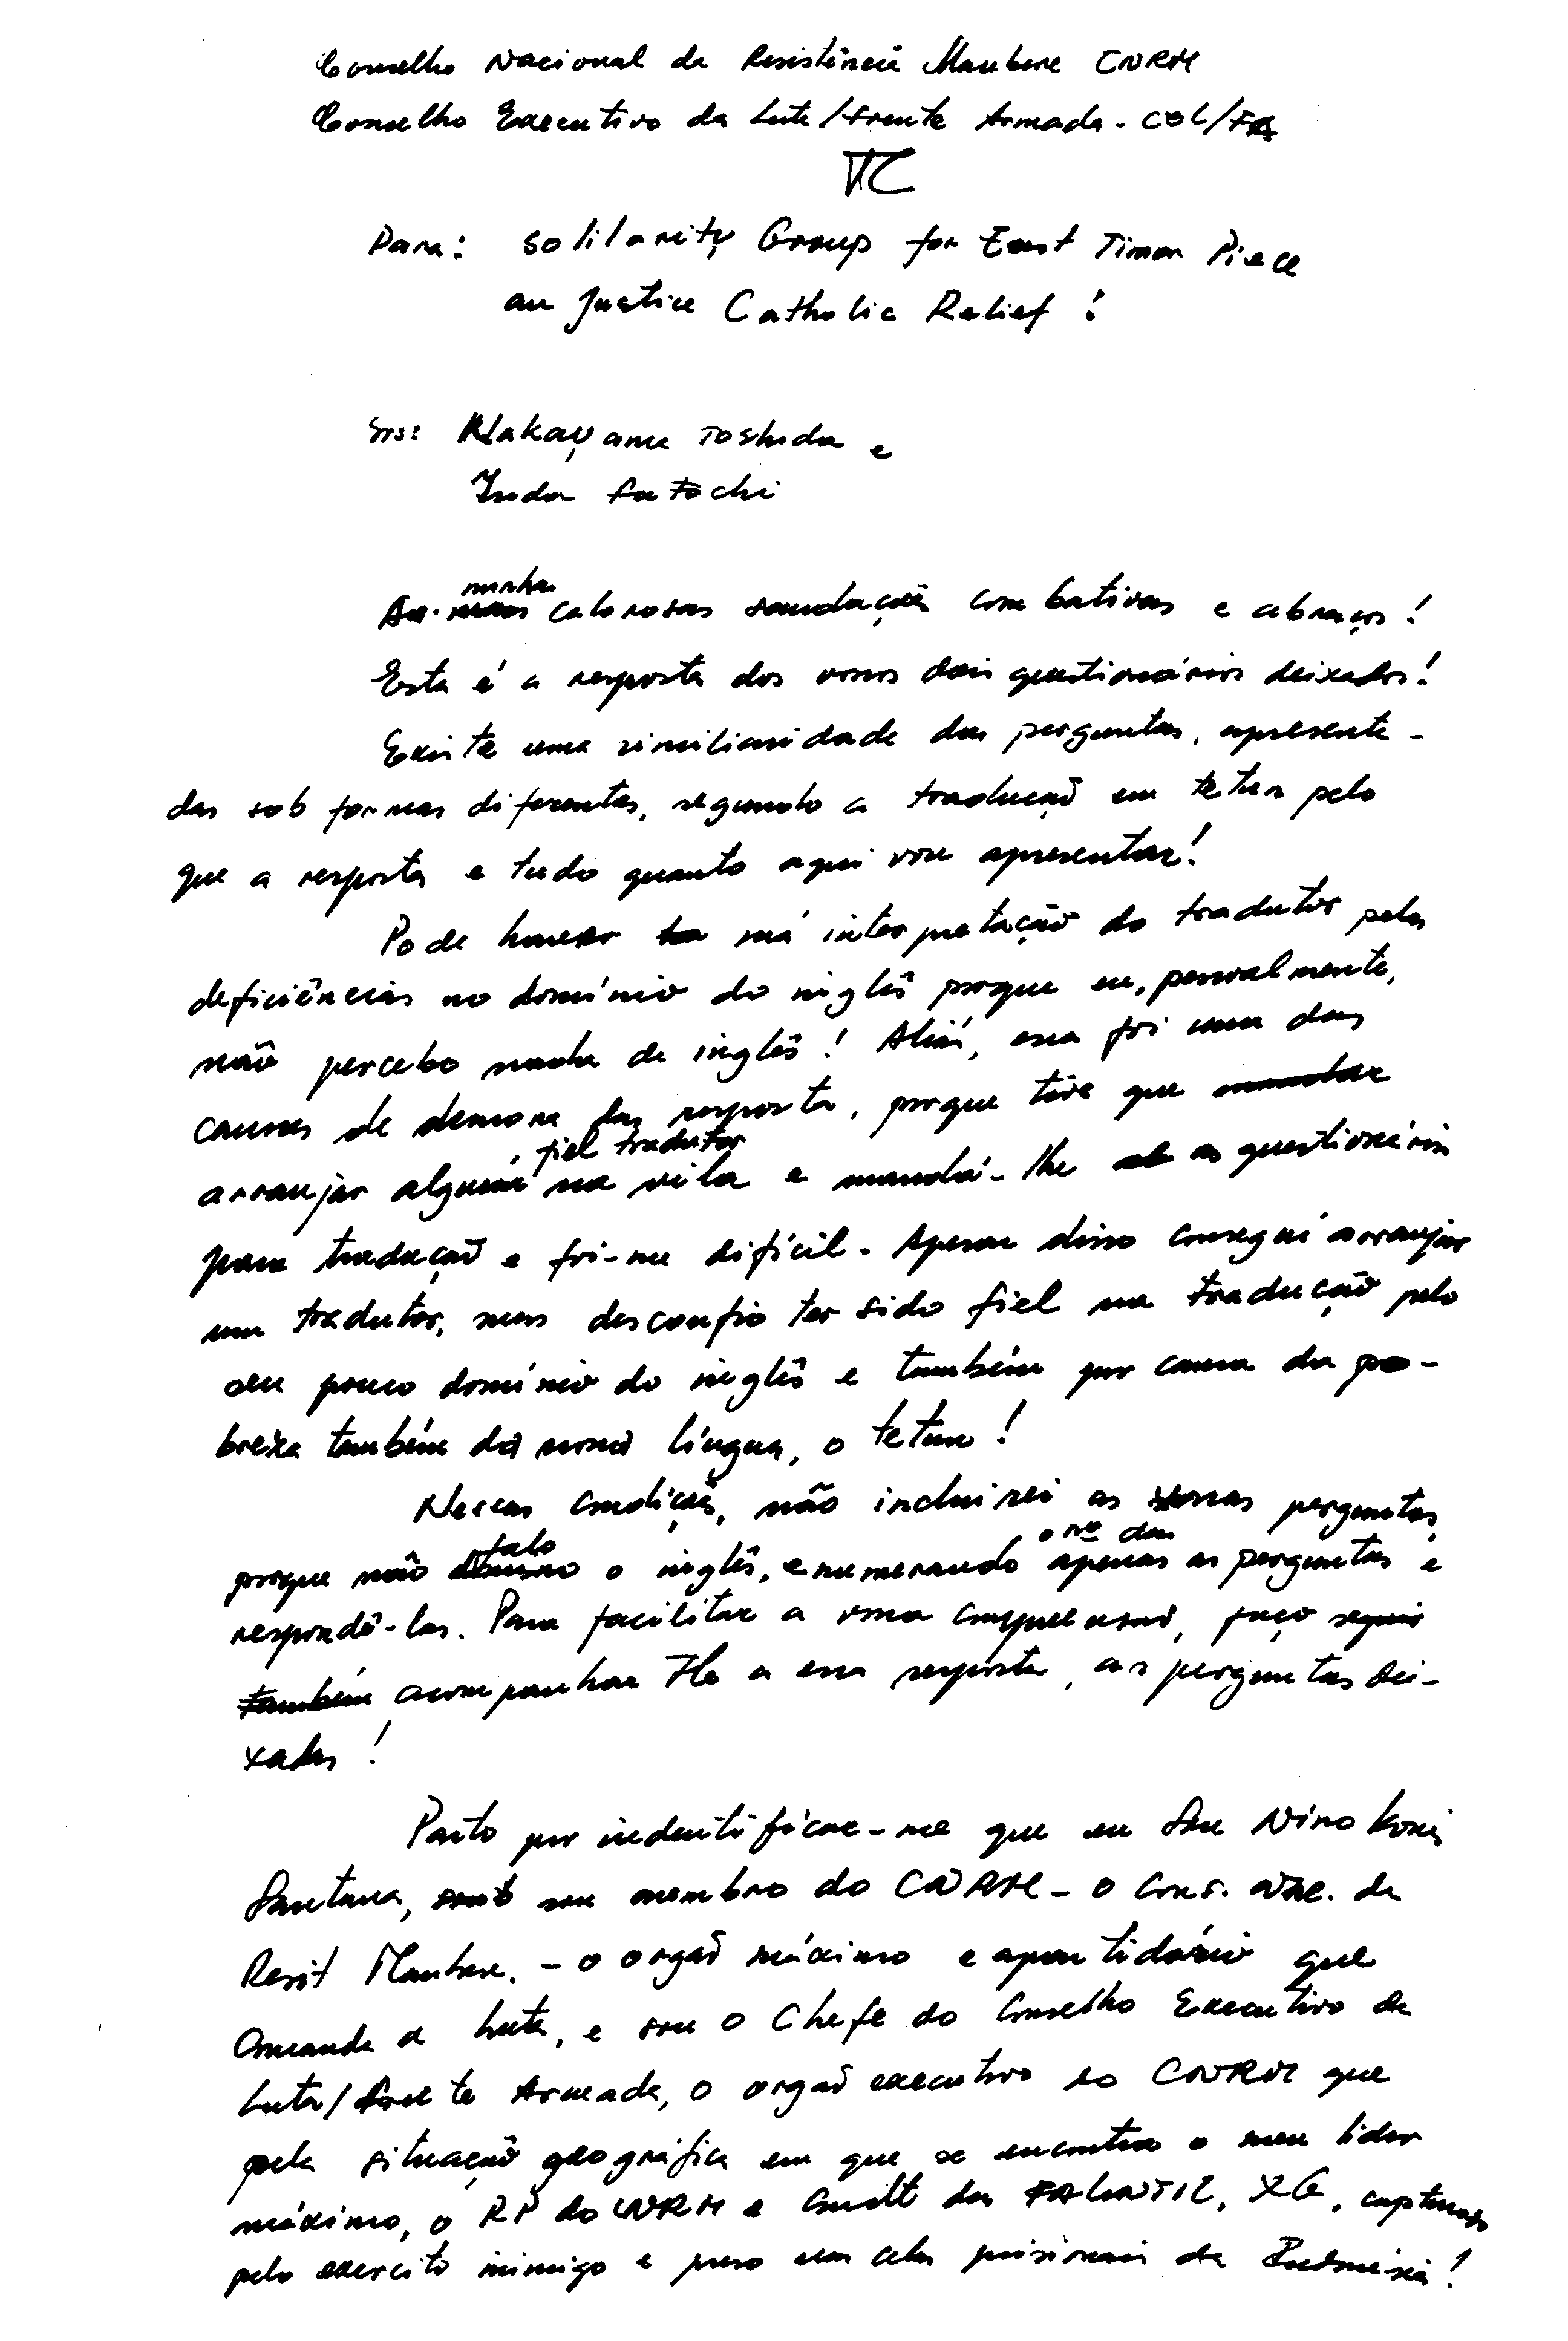 Conselho Nacional da Resistência Maubere CNRM
Conselho Executivo da Luta/Frente Armada - CEL/FA
Para: Solilarity Group for East Timor Piece
an Justice Catholic Relief!
Srs: Nakayama Toshida e
Inda Satochi
As minhas calorosas saudações combativas e abraços!
Esta é a resposta dos vossos dois questionários deixados!
Existe uma similiaridade das perguntas, apresenta-
das sob formas diferentes, segundo a tradução em tetun pelo
que a resposta e tudo quanto aqui vou apresentar!
Pode haver má interpretação do tradutor pelas
deficiências no domínio do inglês porque eu, pessoalmente,
não percebo nada de inglês! Aliás, essa foi uma das
causas de demora das resposta, porque tive que
arranjar alguém, fiel tradutor na vila e mandá-lhe os questionários
para tradução e foi-me difícil. Apesar disso consegui arranjar
um tradutor, mas desconfio ter sido fiel na tradução pelo
seu pouco domínio do inglês e também por causa da po-
breza também da nossa língua, o tetun!
Nessas condições, não incluirei as vossas perguntas,
porque não falo o inglês, enumerando o nº das apenas as perguntas e
respondê-las. Para facilitar a vossa compreensão, faço
acompanhar a essa resposta, as perguntas dei-
xadas!
Parto por indentificar-me que eu Sou Nino Konis
Santana, sou membro do CNRM - o Cons. Nac. da
Resist Maubere. - o orgão máximo e apartidário que
Comanda a luta, e sou o Chefe do Conselho Executivo da
Luta/Frente Armada, o orgão executivo do CNRM que
pela situação geográfica em que se encontra o meu líder
máximo, o RP do CNRM e Cmdt das FALINTIL, XG, capturado
pelo exercito inimigo e preso em celas prisionais da Indonésia!